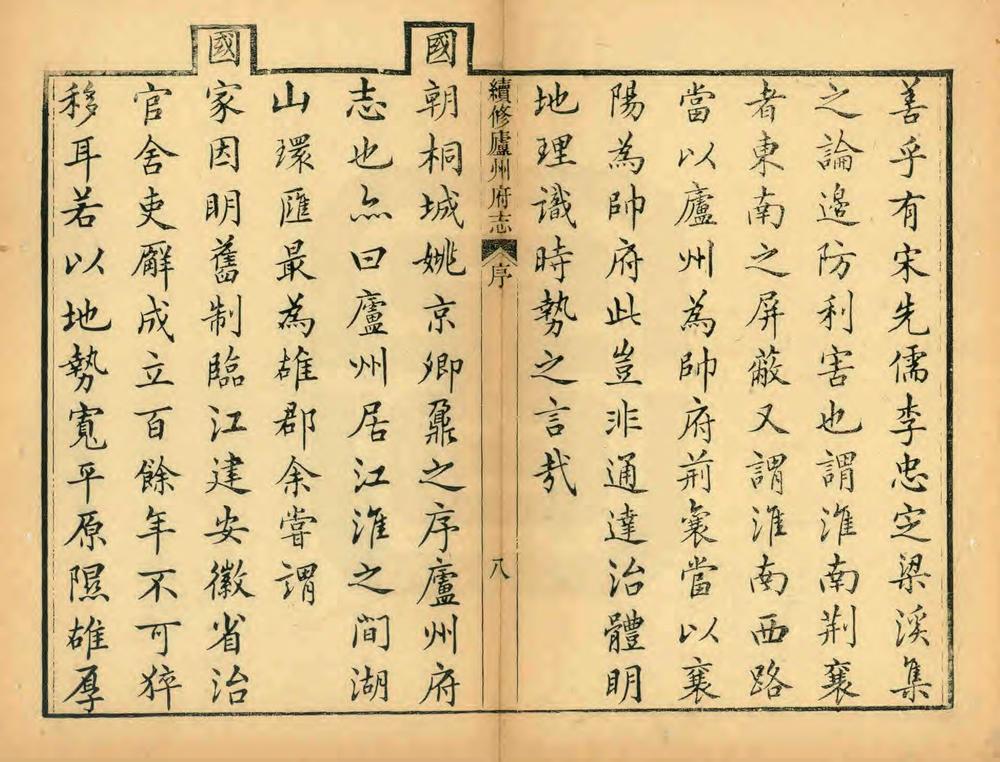 善乎有宋先儒李忠定梁溪集
之論邉防利害也謂淮南荆襄
者東南之屏蔽又謂淮南西路
當以廬州為帥府荊襄當以襄
陽為帥府此豈非通達治體明
地理識時勢之言哉
續修廬州府志 序 八
國
朝桐城姚京卿鼐之序廬州府
志也亦曰廬州居江淮之間湖
山環匯最為雄郡余嘗謂
國
家因明舊制臨江建安徽省治
官舍吏廨成立百餘年不可猝
移耳若以地勢寬平原隰雄厚